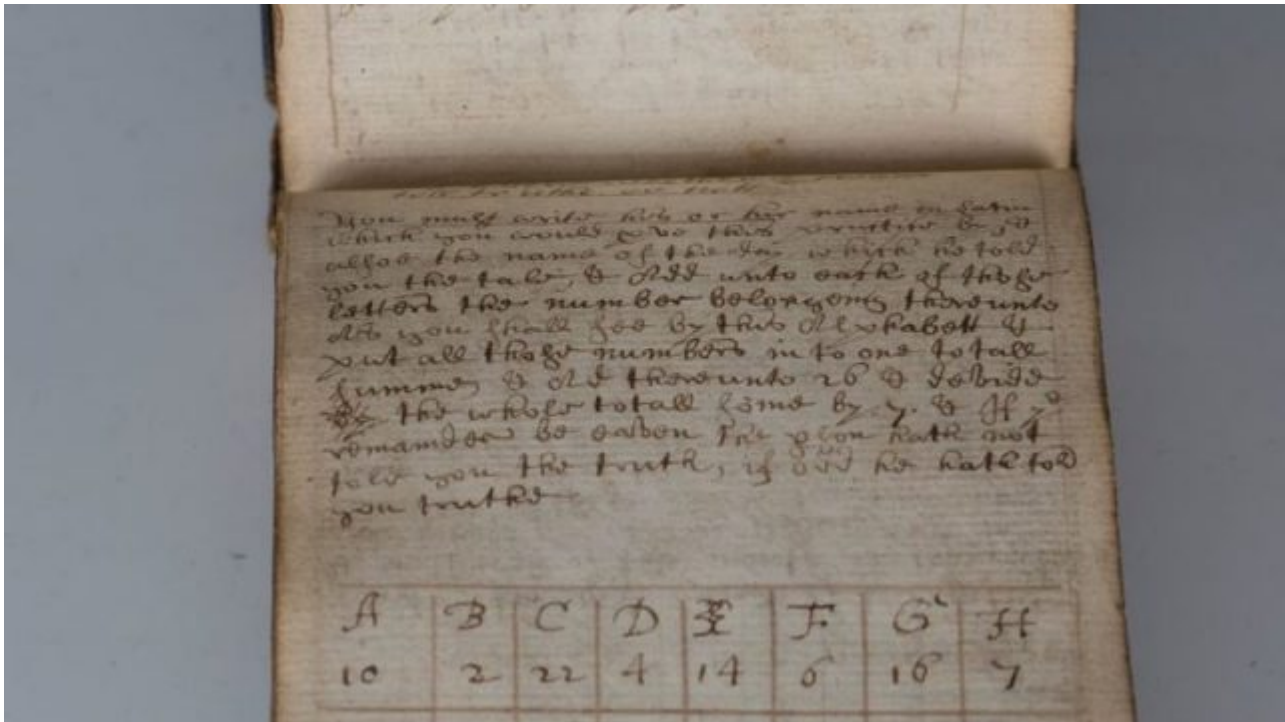 You must write his or her name in Latin
which you would prove this practice by, &
allsoe the name of the day which he told
you the tale, & Add unto each of those
letters the number belongeing thereunto
As you shall see by this Alphabett &
put all those numbers in to one totall
summe, & Ad thereunto 26 & devide
the whole totall some by 7. & If ye
remainder be eaven the pson hath not
told you the truth, if odd he hath told
you truthe
A B C D E F G H
10 2 22 4 14 6 16 7